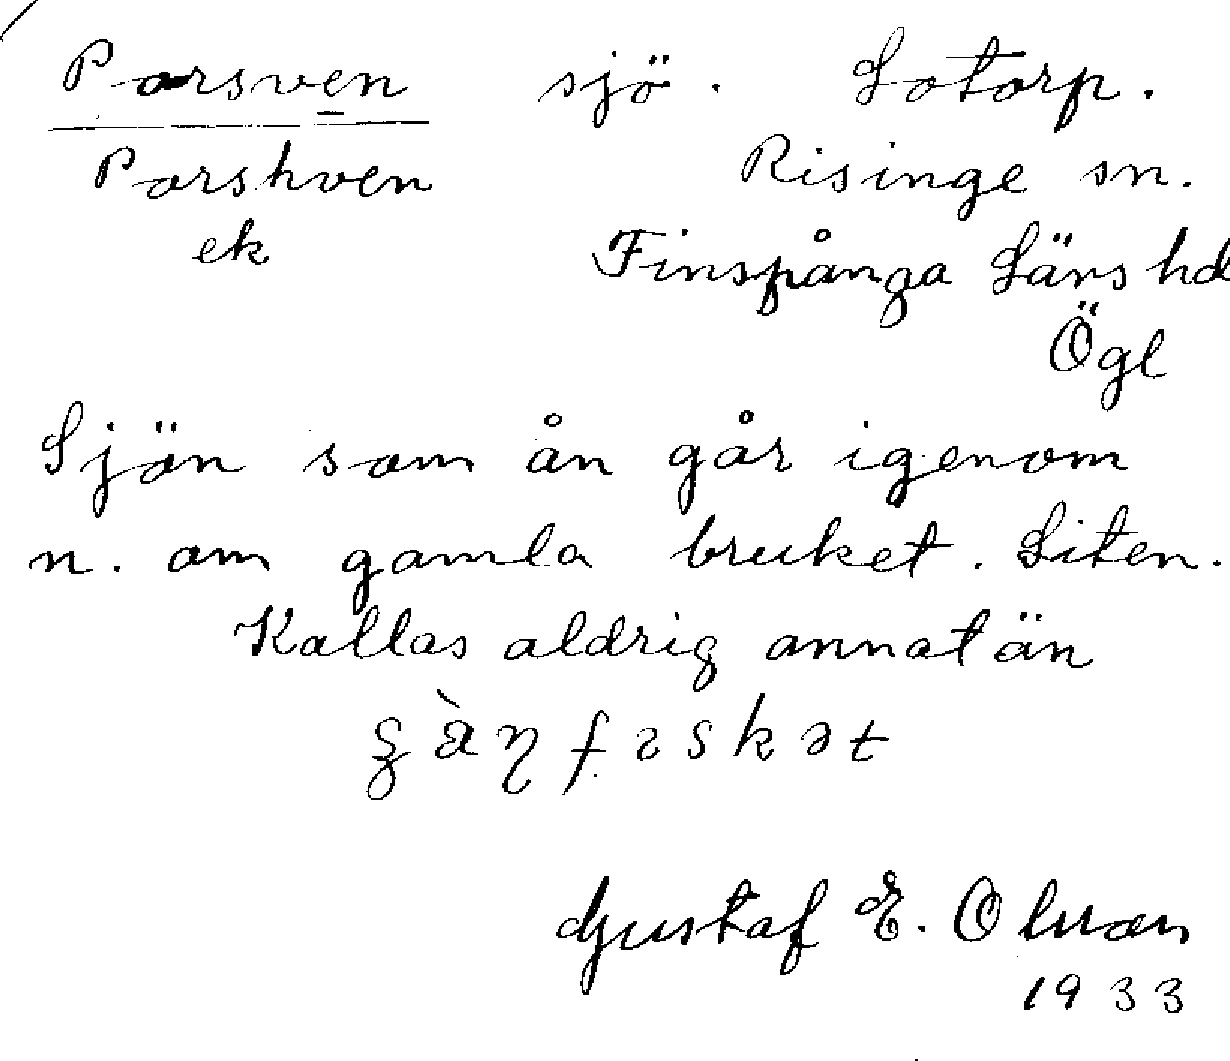 Porsven sjö. Lotorp.
Porshven Risinge sn.
ek Finspånga Läns hd
Ögl
Sjön som ån går igenom
n. om gamla bruket. Liten.
Kallas aldrig annat än
Gustaf E.
1933